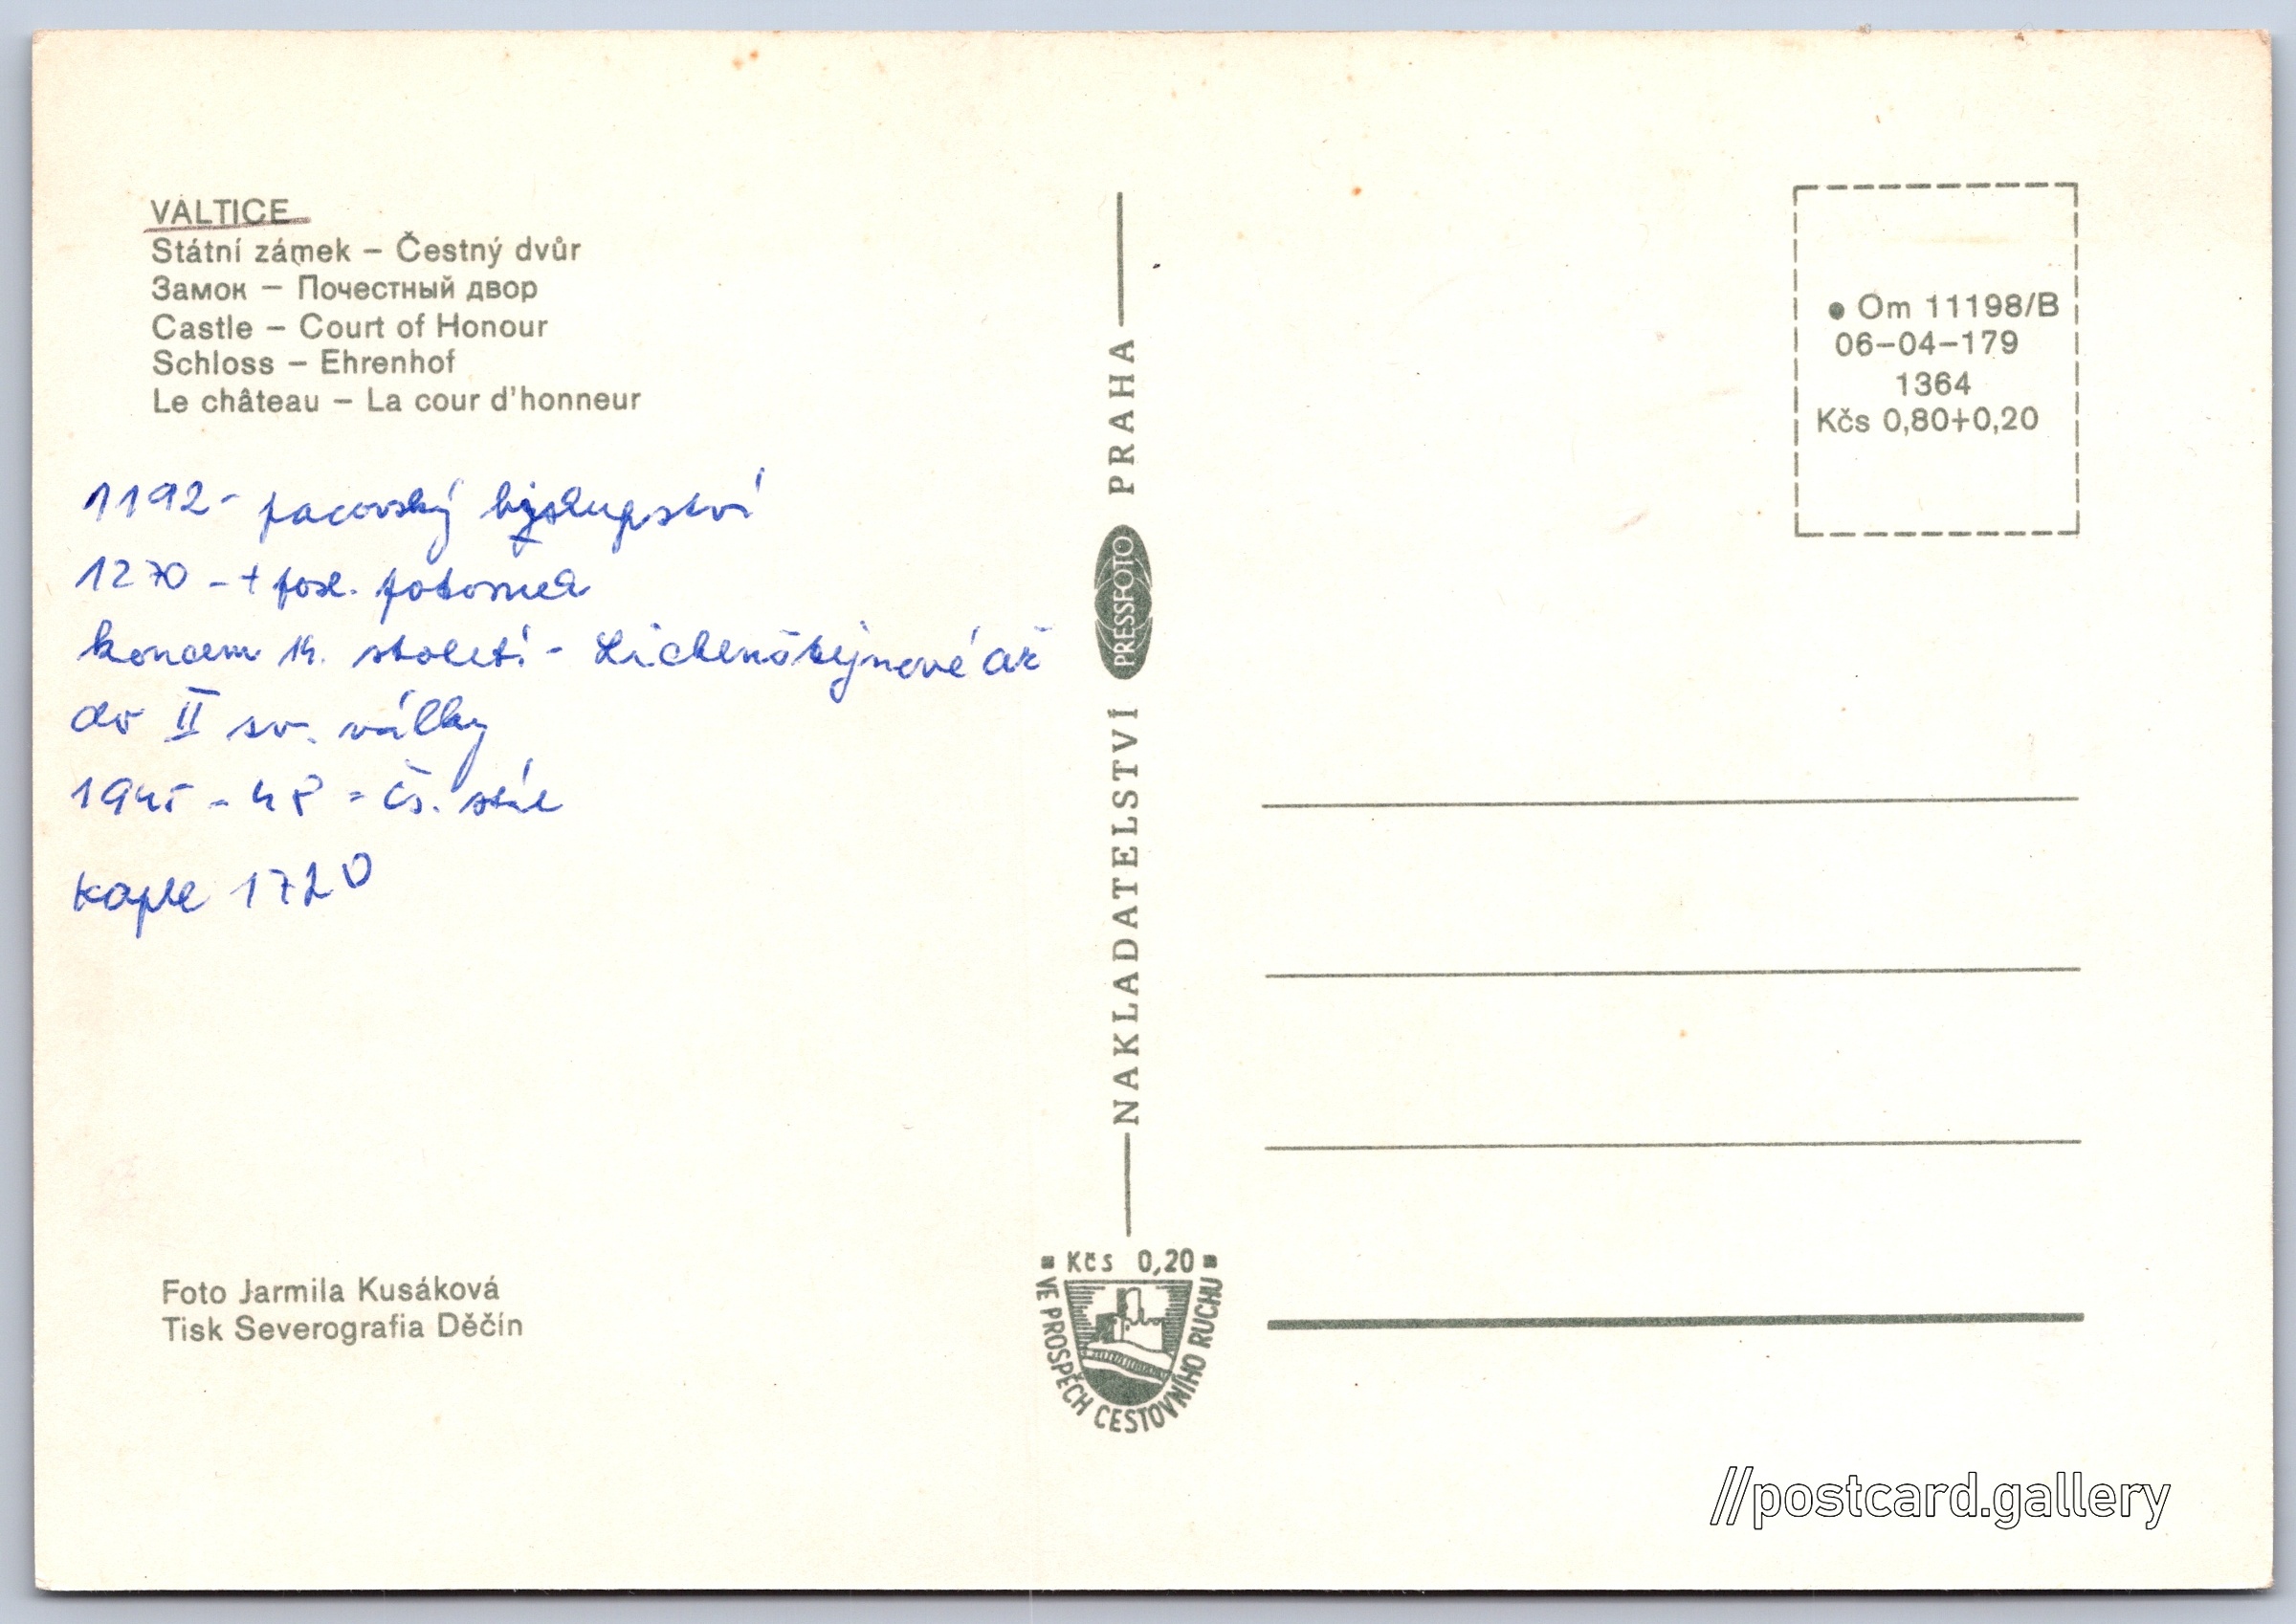 VALTICE
Státní zámek – Čestný dvůr
Замок – Почестный двор
Castle – Court of Honour
Schloss – Ehrenhof
Le château – La cour d'honneur
1192 - pacovský byskupství
1270 - + posl. potomek
koncem 14. století - Lichenštejnové až
do II sv. války
1945 - 48 = čs. stát
kaple 1720
Foto Jarmila Kusáková
Tisk Severografia Děčín
NAKLADATELSTVÍ PRESSFOTO PRAHA
Kčs 0,20
VE PROSPĚCH CESTOVNÍHO RUCHU
● Om 11198/B
06–04–179
1364
Kčs 0,80+0,20
//postcard.gallery